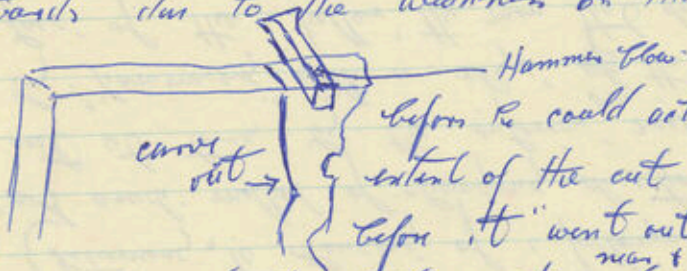 due to the weakness on
Hammer blow
before he could
curve
out
extent of the cut
before it "went out